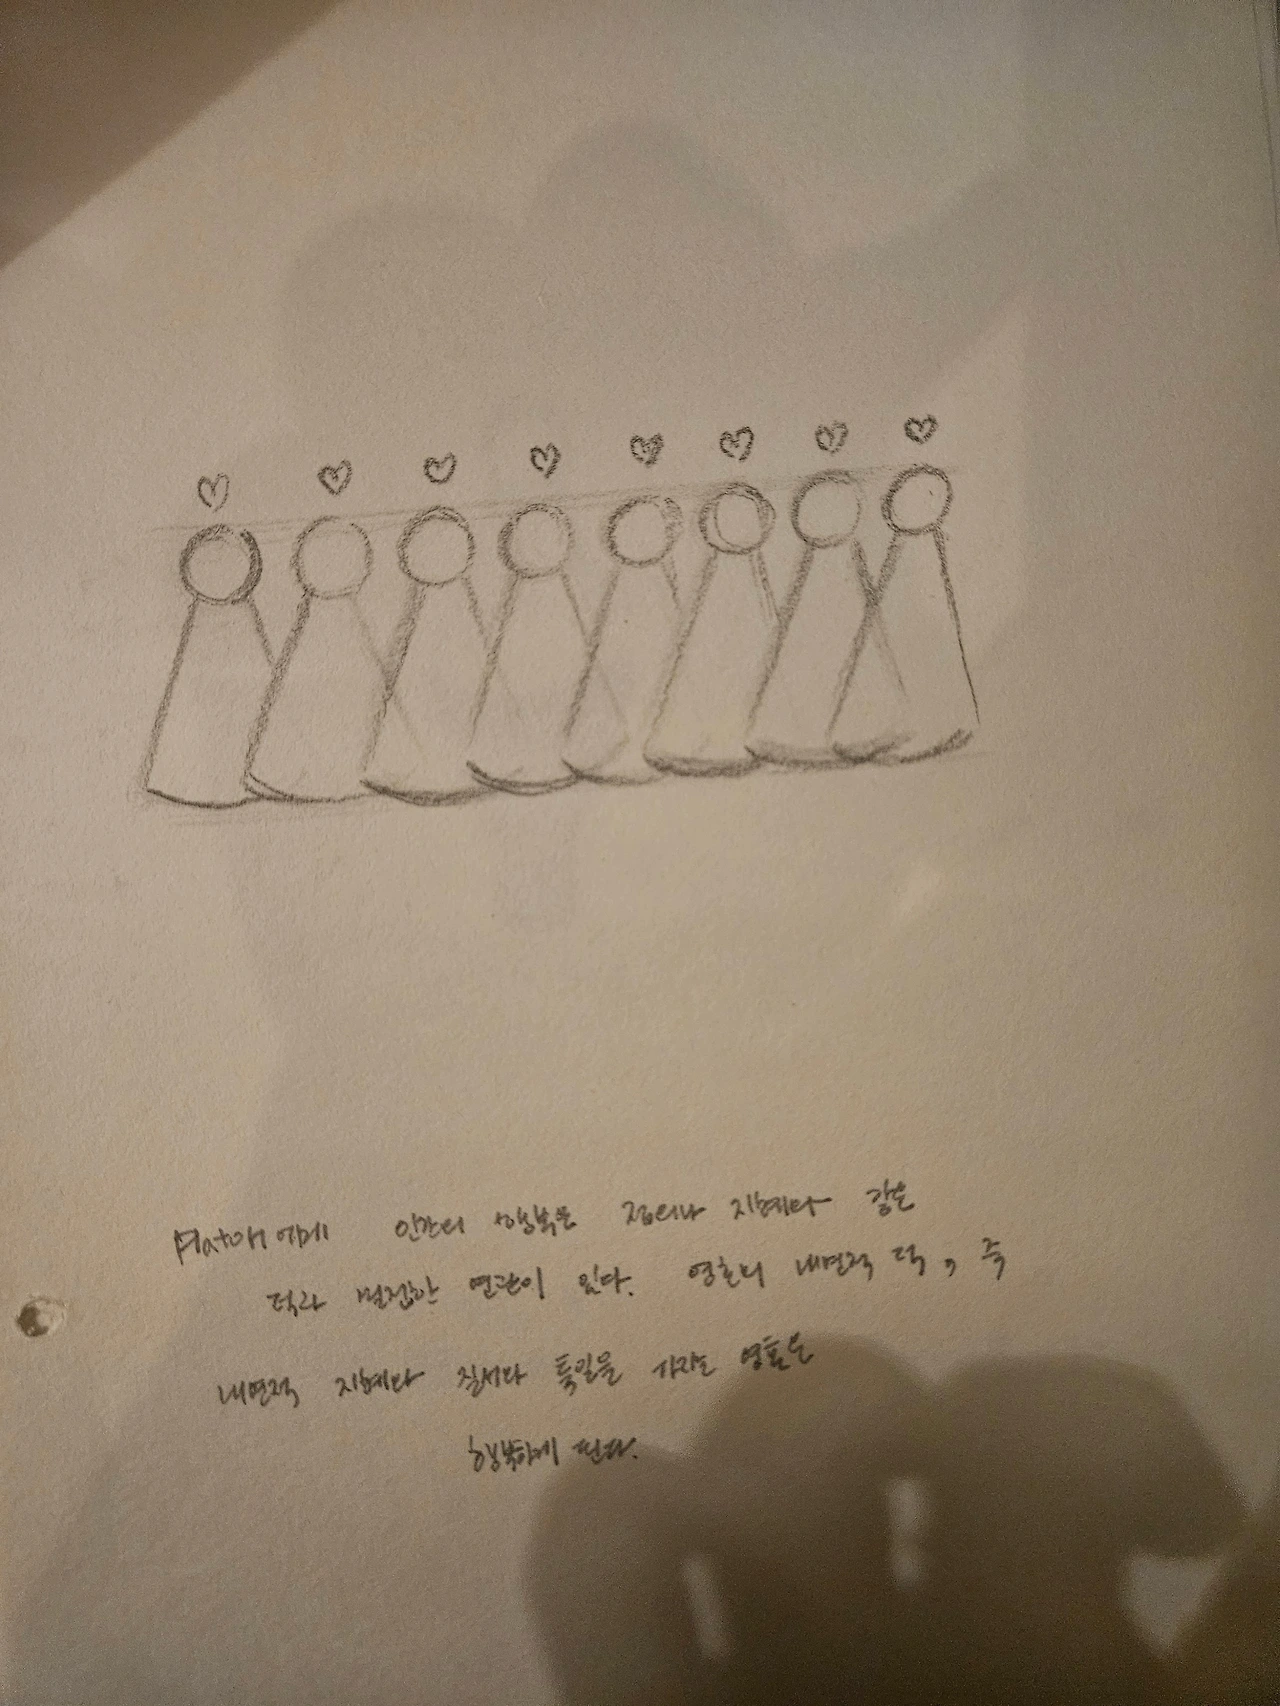 Platon에게 인간의 행복은 정의나 지혜와 같은
덕과 밀접한 연관이 있다. 영혼의 내면적 덕, 즉
내면적 지혜와 질서와 통일을 가지는 영혼은
행복하게 된다.